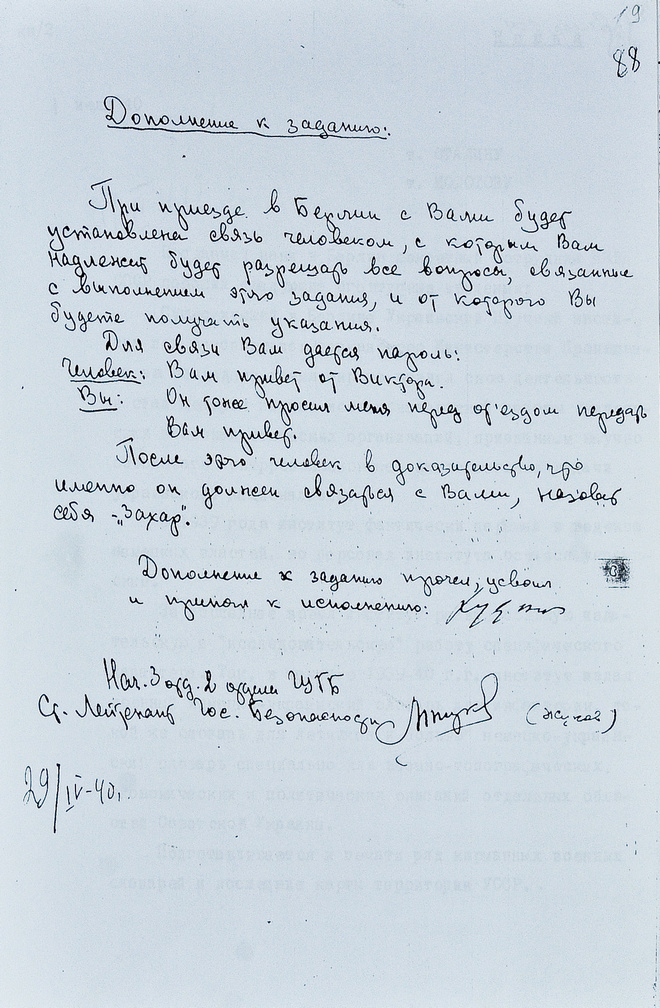 19
88
Дополнение к заданию:
При приезде в Берлин с Вами будет
установлена связь человеком, с которым Вам
надлежит будет разрешать все вопросы, связанные
с выполнением этого задания, и от которого Вы
будете получать указания.
Для связи Вам дается пароль:
Человек: Вам привет от Виктора.
Вы: Он тоже просил меня перед от'ездом передать
Вам привет.
После этого человек в доказательство, что
именно он должен связаться с Вами, назовет
себя - "Захар".
Дополнение к заданию прочел, усвоил
и принял к исполнению:
Нач. 3 отд. 2 отдела ГУГБ
Ст. Лейтенант Гос. Безопасности (Жуков)
29/IV-40г.